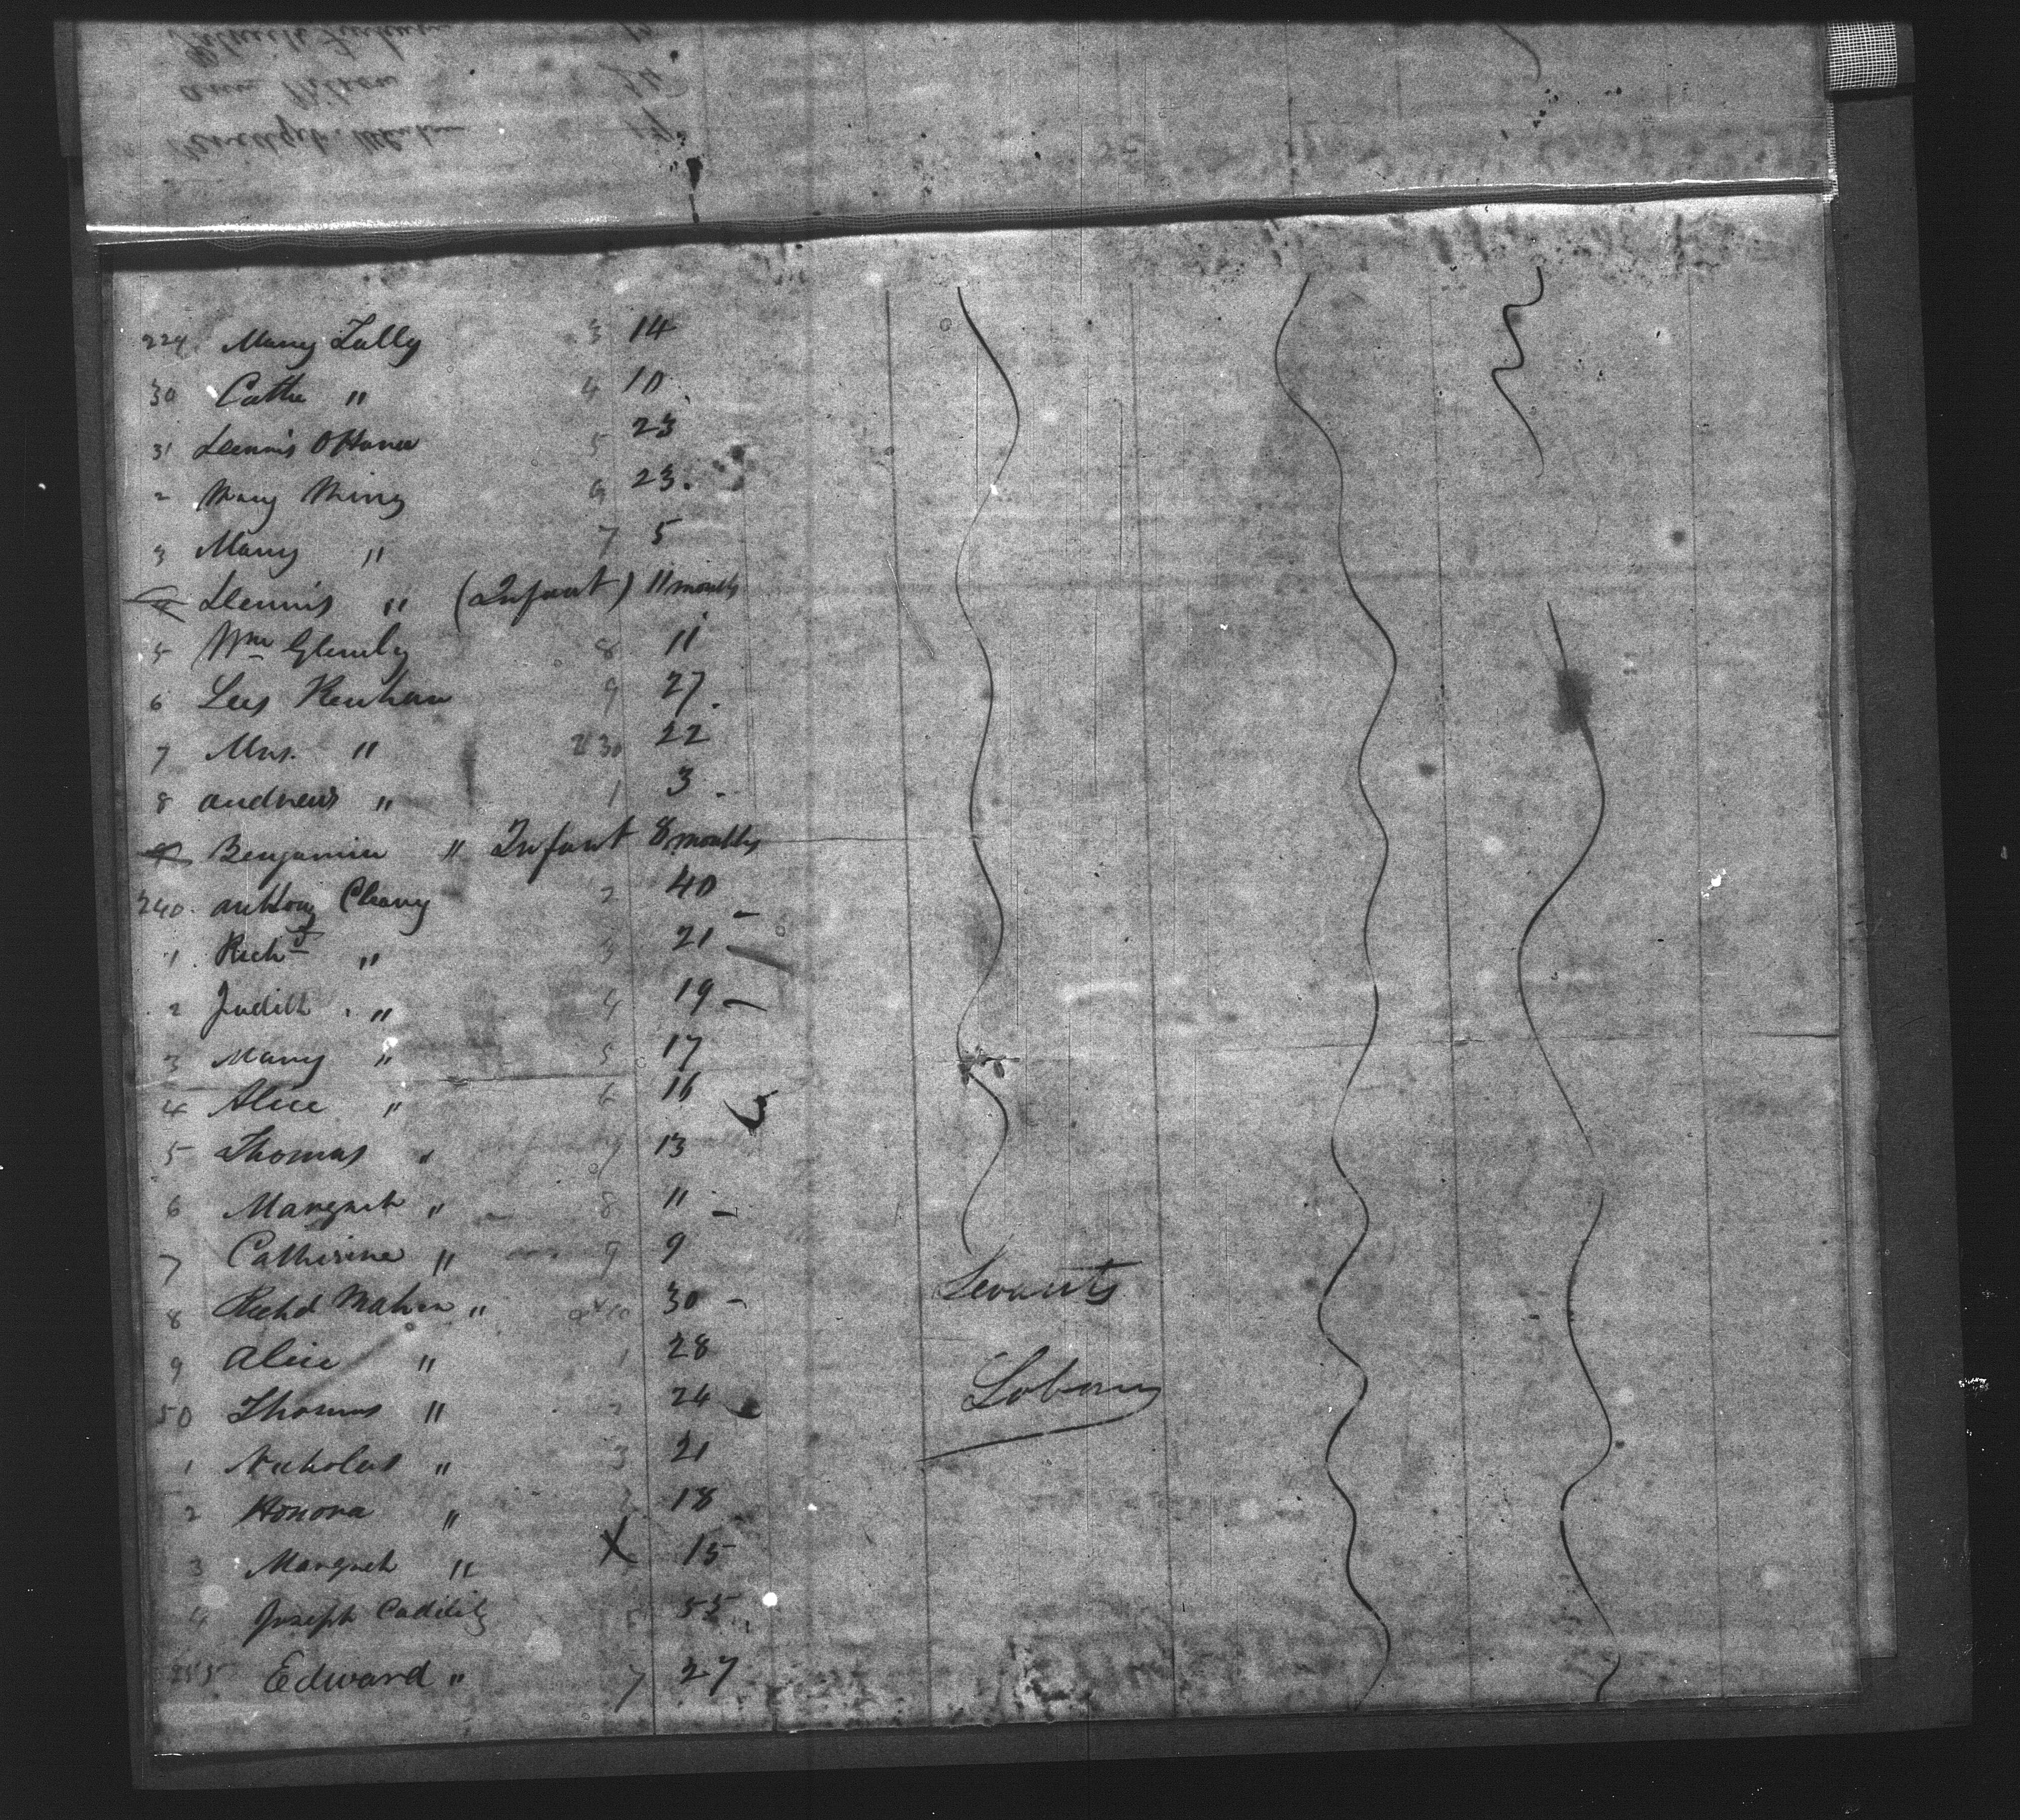 229 Mary Lally 3 14
30 Cathe " 4 10
31 Dennis OHara 5 23
2 Mary 6 23.
3 Mary " 7 5
4 Dennis " (Infant) 11 months
5 Wm 8 11
6 Les Renhan 9 27.
7 Mrs. " 30 22
8 Andrew " 1 3
9 Benjamin " Infant 8 months
240. Anthony Cleary 2 40
1 Richd " 3 21
2 Judith " 4 19
3 Mary " 5 17
4 Alice " 6 16
5 Thomas " 7 13
6 Margret " 8 11
7 Catherine " 9 9
Sevants
8 Richd Maher " 30
9 Alice " 1 28
Labours
50 Thomas " 2 24
1 Nicholas " 3 21
2 Honora " 18
3 Margret " X 15
4 Joseph 55
Edward " 7 27